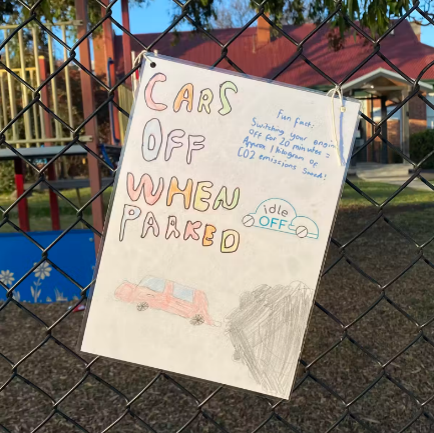 CARS
OFF
WHEN
PARKED
Fun fact:
Switching your engine
off for 20 minutes =
Approx 1 kilogram of
CO2 emissions saved!
idle
OFF